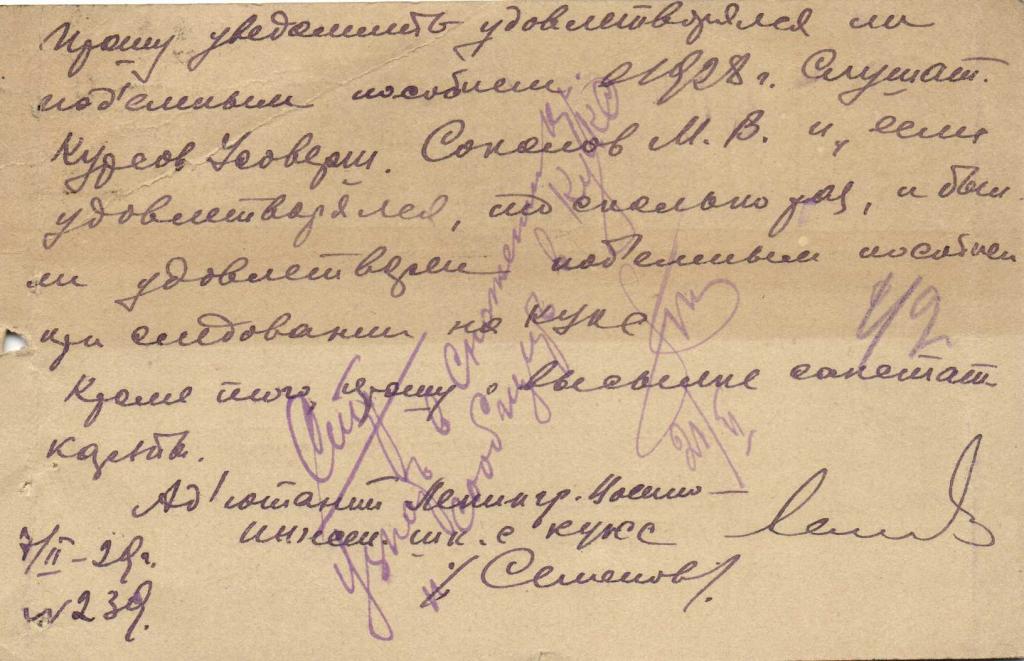 Прошу уведомить удовлетворялся ли
под'емным пособием в 1928 г. Слушат.
Курсов Усоверш. Соколов М. В. и, если
удовлетворялся, то сколько раз, и был
ли удовлетворен под'емным пособием
при следовании на
Кроме того, прошу о высылке
карты.
Ад'ютант Ленингр. Военно-
инжен. шк. с
/Семенов/.
7/II-29г.
№ 239.
Узнать в
Сообщить
42
21/II